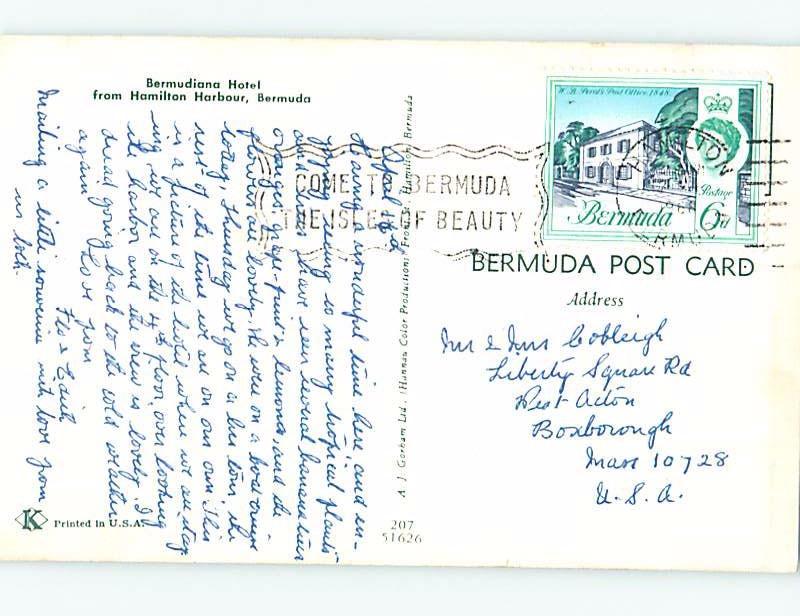 Bermudiana Hotel
from Hamilton Harbour, Bermuda
April 6th
Having a wonderful time here and en-
joying seeing so many tropical plants
and trees. have seen several banana trees
oranges grape-fruit & lemons, and the
flowers are lovely. We were on a boat cruise
today, Thursday we go on a bus tour, the
rest of the time we are on our own. This
is a picture of the hotel where we are stay
ing, we are on the 4th floor over looking
the harbor and the view is lovely. I
dread going back to the cold weather
again
Love from
Flo & Edith
Mailing a little souvenir with love from
us both.
A. J. Gorham Ltd., (Hannau Color Productions) Hamilton, Bermuda
W. B. Perot's Post Office, 1848
Postage
Bermuda 6d
HAMILTON
COME TO BERMUDA
THE ISLE OF BEAUTY
BERMUDA POST CARD
Address
Mr & Mrs Cobleigh
Liberty Square Rd
West Acton
Boxborough
Mass 10728
U.S.A.
K Printed in U.S.A.
207
51626